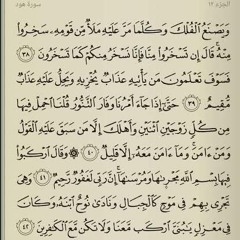 الجزء ١٢ سورة هود
وَيَصْنَعُ ٱلْفُلْكَ وَكُلَّمَا مَرَّ عَلَيْهِ مَلَأٌ مِّن قَوْمِهِۦ سَخِرُوا۟
مِنْهُ قَالَ إِن تَسْخَرُوا۟ مِنَّا فَإِنَّا نَسْخَرُ مِنكُمْ كَمَا تَسْخَرُونَ ٣٨
فَسَوْفَ تَعْلَمُونَ مَن يَأْتِيهِ عَذَابٌ يُخْزِيهِ وَيَحِلُّ عَلَيْهِ عَذَابٌ
مُّقِيمٌ ٣٩ حَتَّىٰٓ إِذَا جَآءَ أَمْرُنَا وَفَارَ ٱلتَّنُّورُ قُلْنَا ٱحْمِلْ فِيهَا
مِن كُلٍّ زَوْجَيْنِ ٱثْنَيْنِ وَأَهْلَكَ إِلَّا مَن سَبَقَ عَلَيْهِ ٱلْقَوْلُ
وَمَنْ ءَامَنَ وَمَآ ءَامَنَ مَعَهُۥٓ إِلَّا قَلِيلٌ ٤٠ وَقَالَ ٱرْكَبُوا۟
فِيهَا بِسْمِ ٱللَّهِ مَجْر۪ىٰهَا وَمُرْسَىٰهَآ إِنَّ رَبِّى لَغَفُورٌ رَّحِيمٌ ٤١ وَهِىَ
تَجْرِى بِهِمْ فِى مَوْجٍ كَٱلْجِبَالِ وَنَادَىٰ نُوحٌ ٱبْنَهُۥ وَكَانَ
فِى مَعْزِلٍ يَٰبُنَىَّ ٱرْكَب مَّعَنَا وَلَا تَكُن مَّعَ ٱلْكَٰفِرِينَ ٤٢